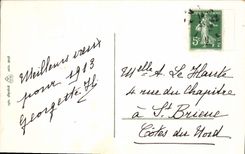 Meilleurs vœux
pour 1913
Georgette H
5c
Mlle A. Le Hante
4 rue du Chapitre
à St Brieuc
Côtes du Nord